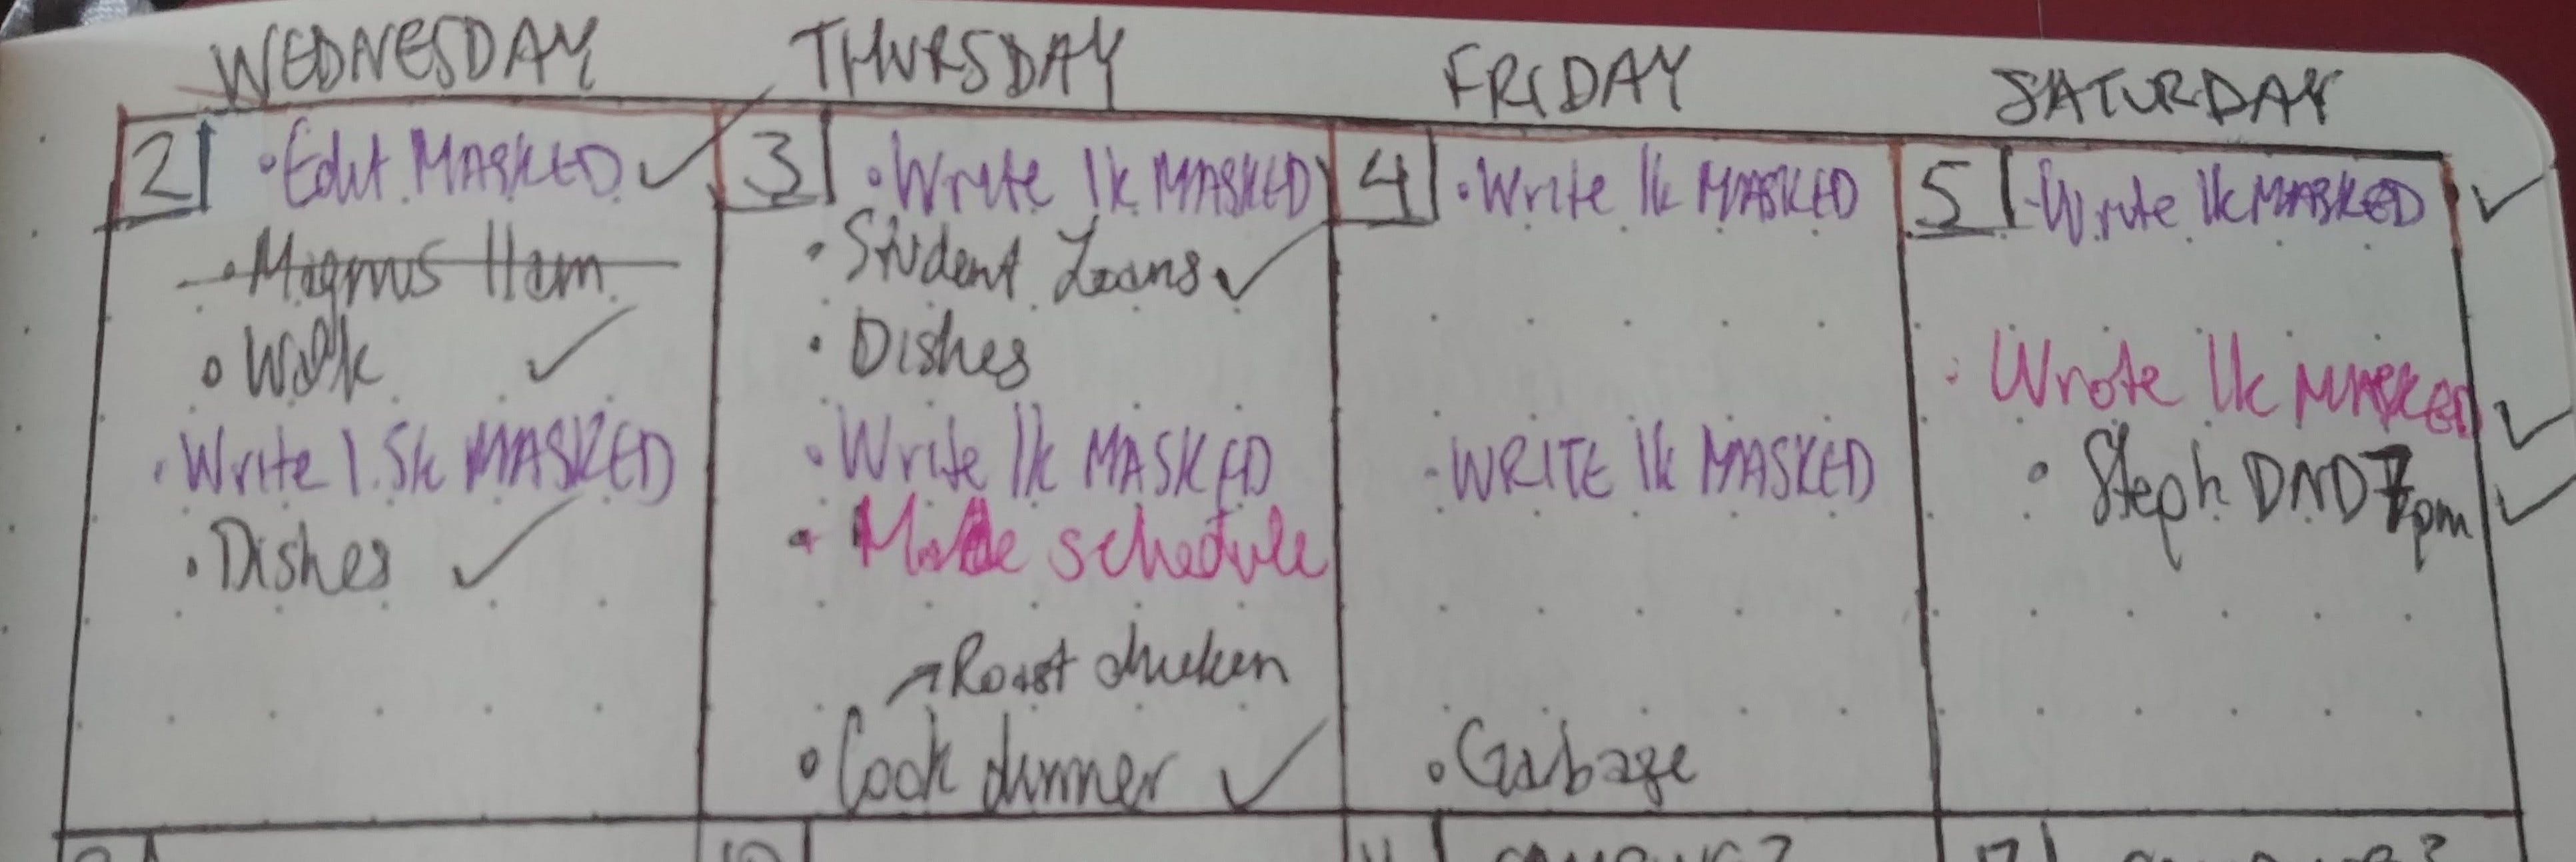 WEDNESDAY THURSDAY FRIDAY SATURDAY
2
• Edit MASKED ✓
• Magnus Ham
• Walk ✓
• Write 1.5k MASKED
• Dishes ✓
3
• Write 1k MASKED
• Student Loans ✓
• Dishes
• Write 1k MASKED
• Made schedule
→ Roast chicken
• Cook dinner ✓
4
• Write 1k MASKED
• WRITE 1k MASKED
• Garbage
5
• Write 1k MASKED ✓
• Wrote 1k MASKED ✓
• Steph DND 7pm ✓
10
11